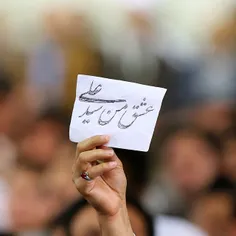 عشق من سید علی